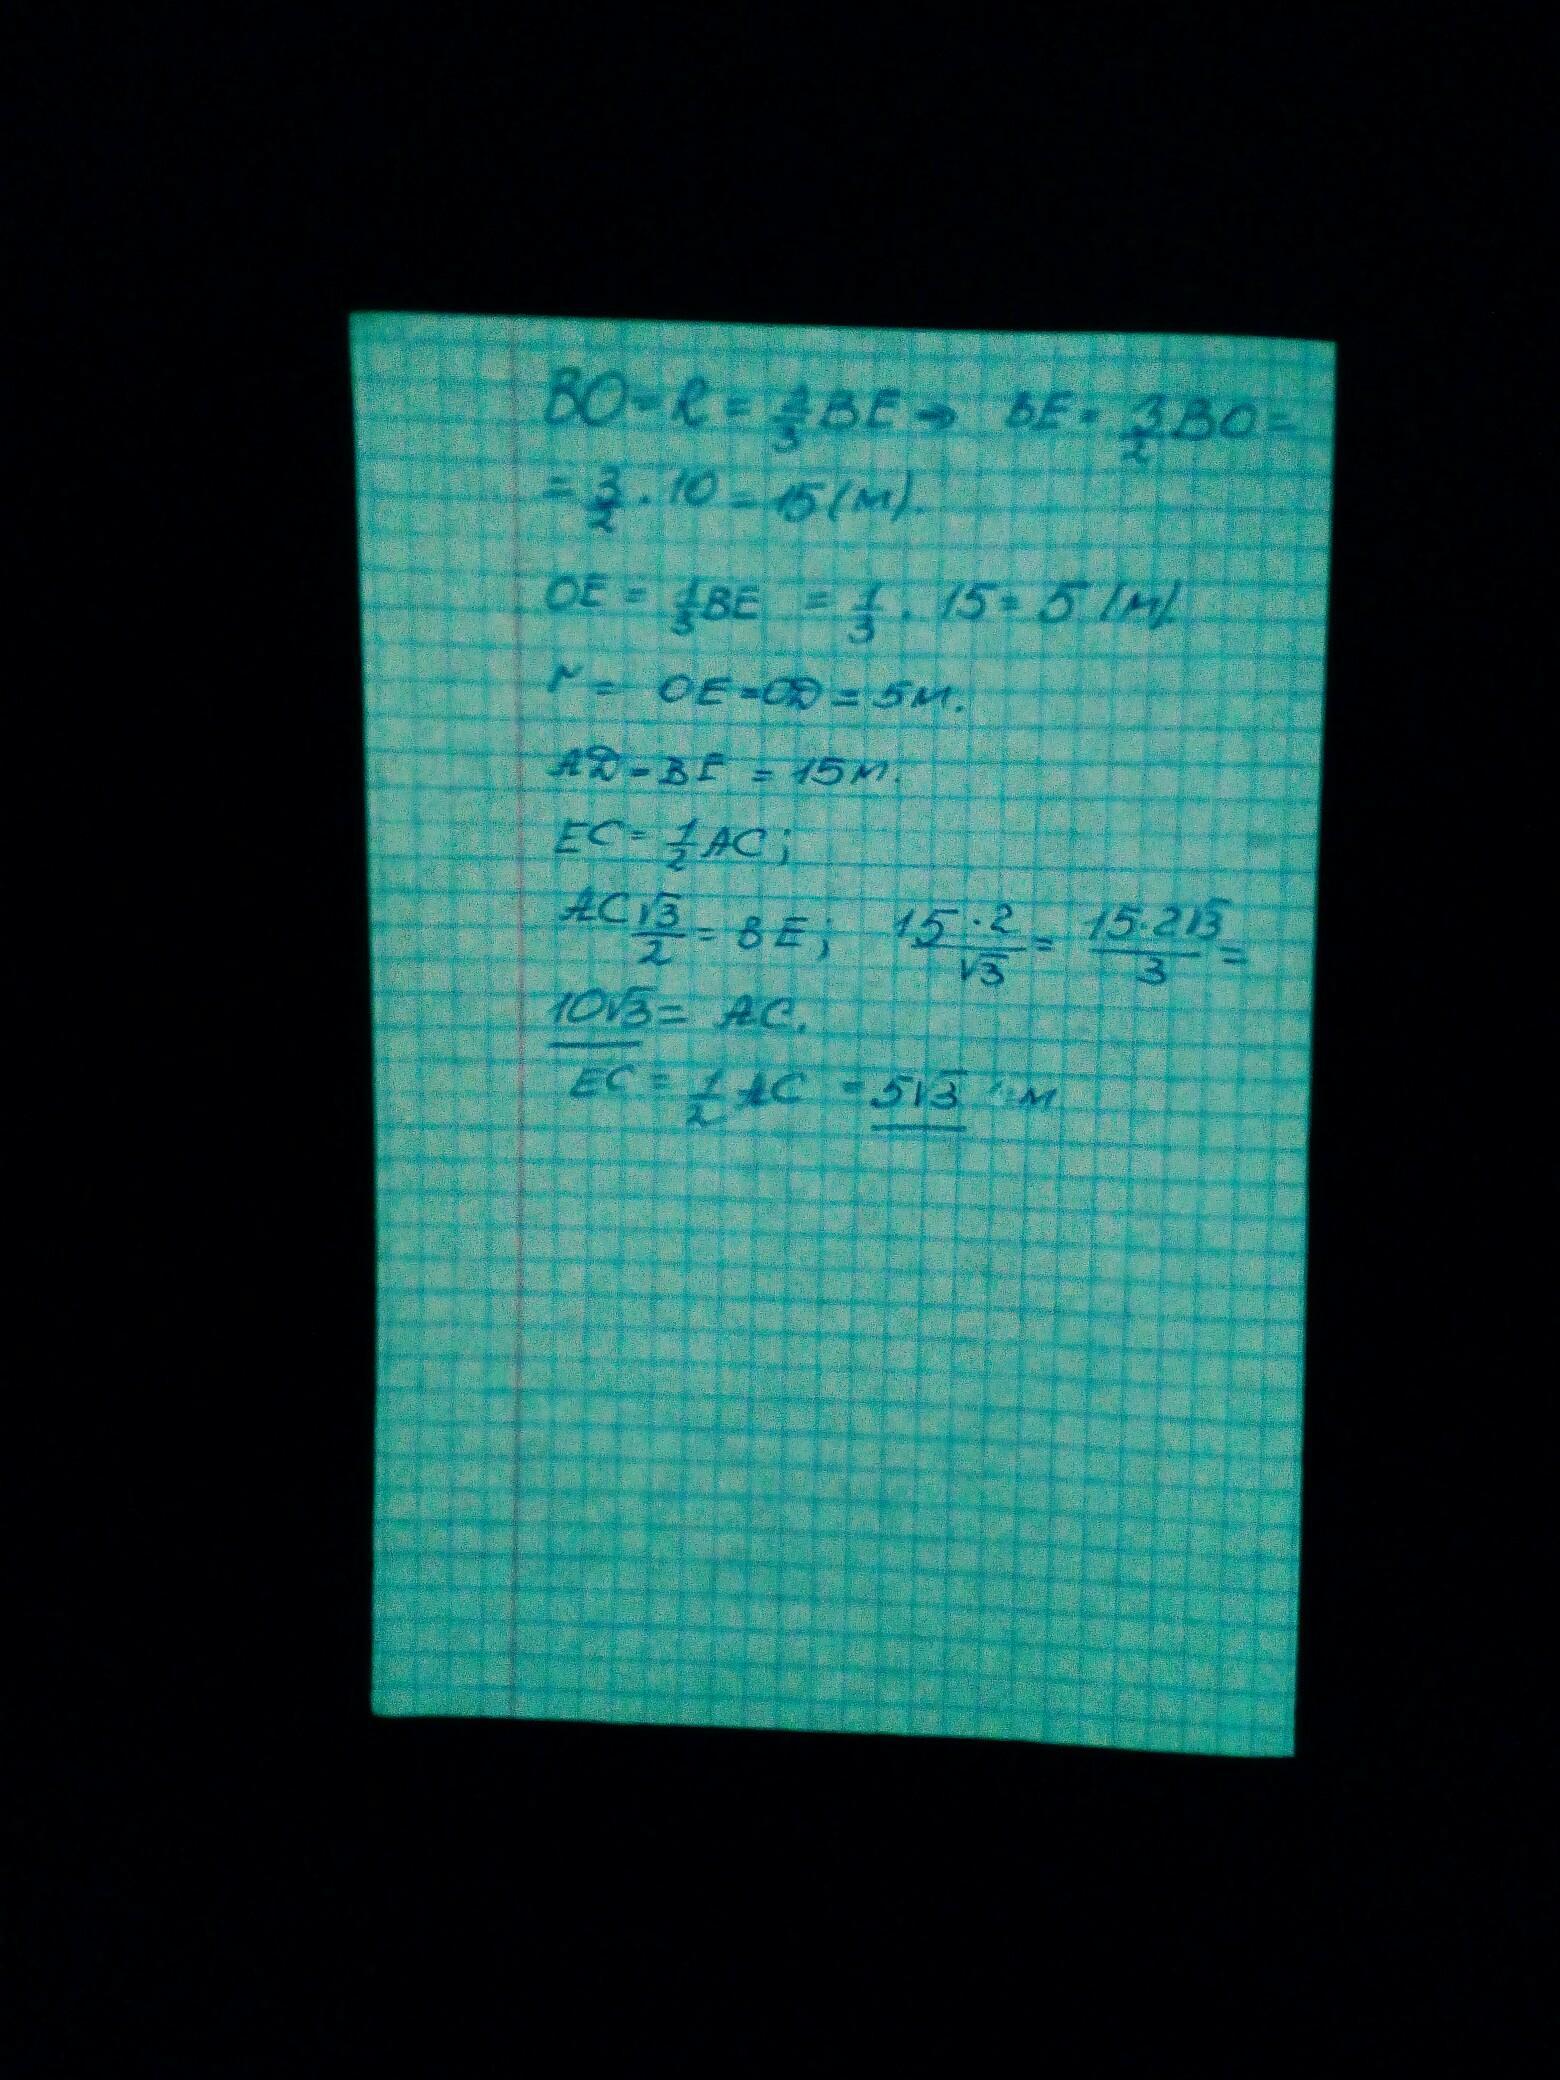 BO = R = 2/3 BE ⇒ BE = 3/2 BO =
= 3/2 · 10 = 15 (м).
OE = 1/3 BE = 1/3 · 15 = 5 (м)
r = OE = OD = 5 м.
AD = BE = 15 м.
EC = 1/2 AC;
AC√3/2 = BE; 15·2/√3 = 15·2√3/3 =
10√3 = AC.
EC = 1/2 AC = 5√3 м